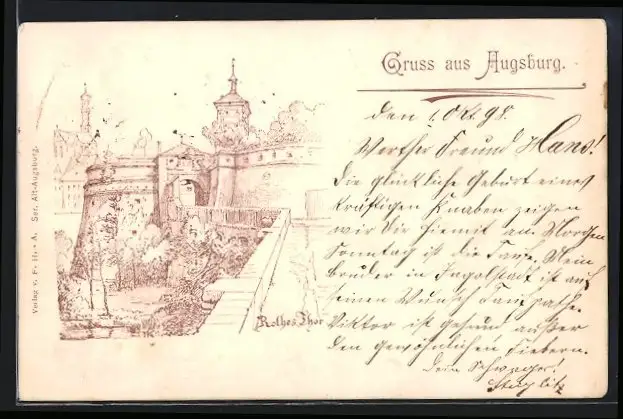 Gruss aus Augsburg.
den 1. Okt. 98.
Werther Freund Hans!
Die glückliche Geburt eines
kräftigen Knaben zeigen
wir Dir hiemit an. Morgen
Sonntag ist die Taufe. Mein
Bruder in Ingolstadt ist auf
seinen Wunsch Taufpathe.
Viktor ist gesund außer
den gewöhnlichen Fiebern.
Dein Schwager!
Rothes Thor
Verlag v. F. H. i. A. Ser. Alt-Augsburg.